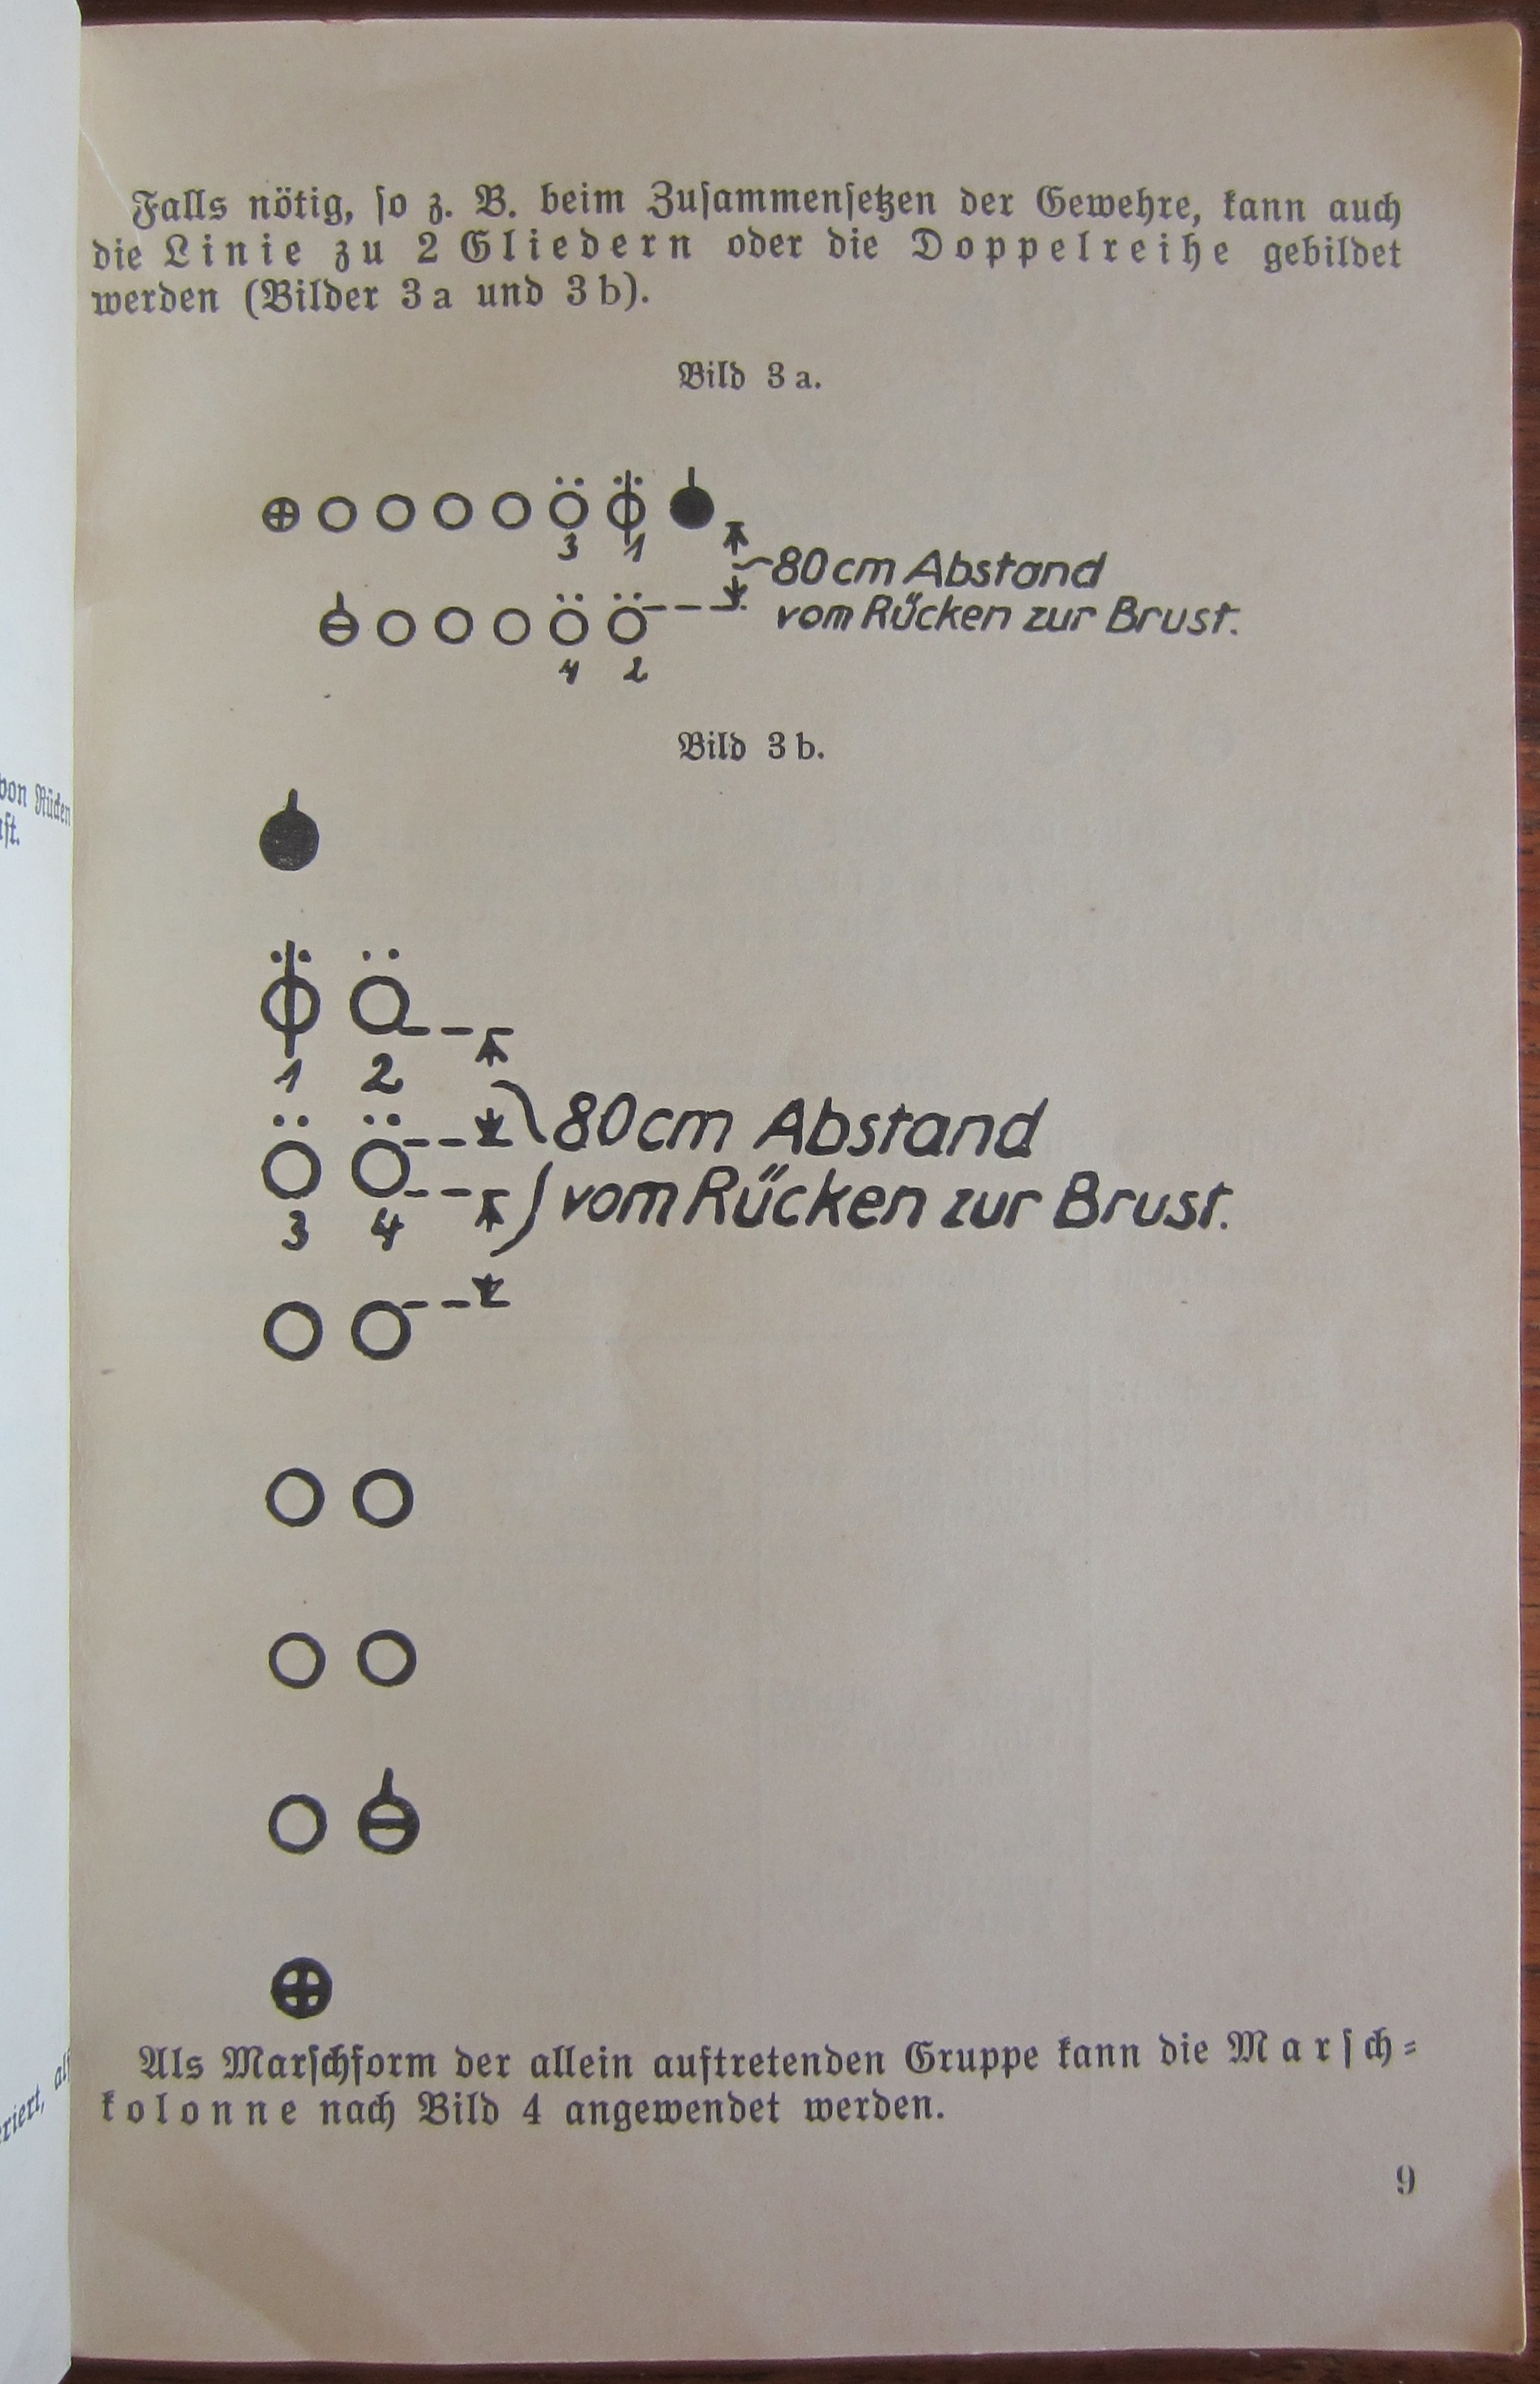 Falls nötig, so z. B. beim Zusammensetzen der Gewehre, kann auch
die Linie zu 2 Gliedern oder die Doppelreihe gebildet
werden (Bilder 3a und 3b).
Bild 3a.
3 1
80cm Abstand
vom Rücken zur Brust.
4 2
Bild 3b.
1 2
80cm Abstand
vom Rücken zur Brust.
3 4
Als Marschform der allein auftretenden Gruppe kann die Marsch=
kolonne nach Bild 4 angewendet werden.
9
von Rücken